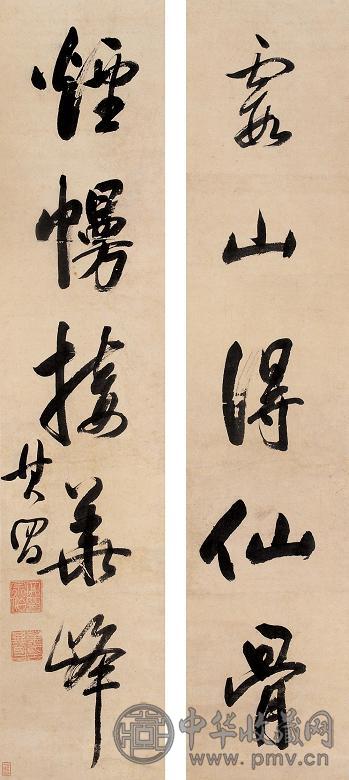 霞山得仙骨
煙幌接華峰
其昌
中华收藏网
www.pmv.cn